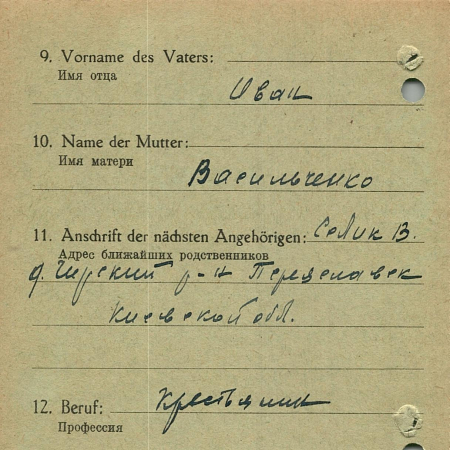 9. Vorname des Vaters:
Имя отца
Иван
10. Name der Mutter:
Имя матери
Васильченко
11. Anschrift der nächsten Angehörigen: Селик В.
Адрес ближайших родственников
р-н
Киевской обл.
12. Beruf: Крестьянин
Профессия